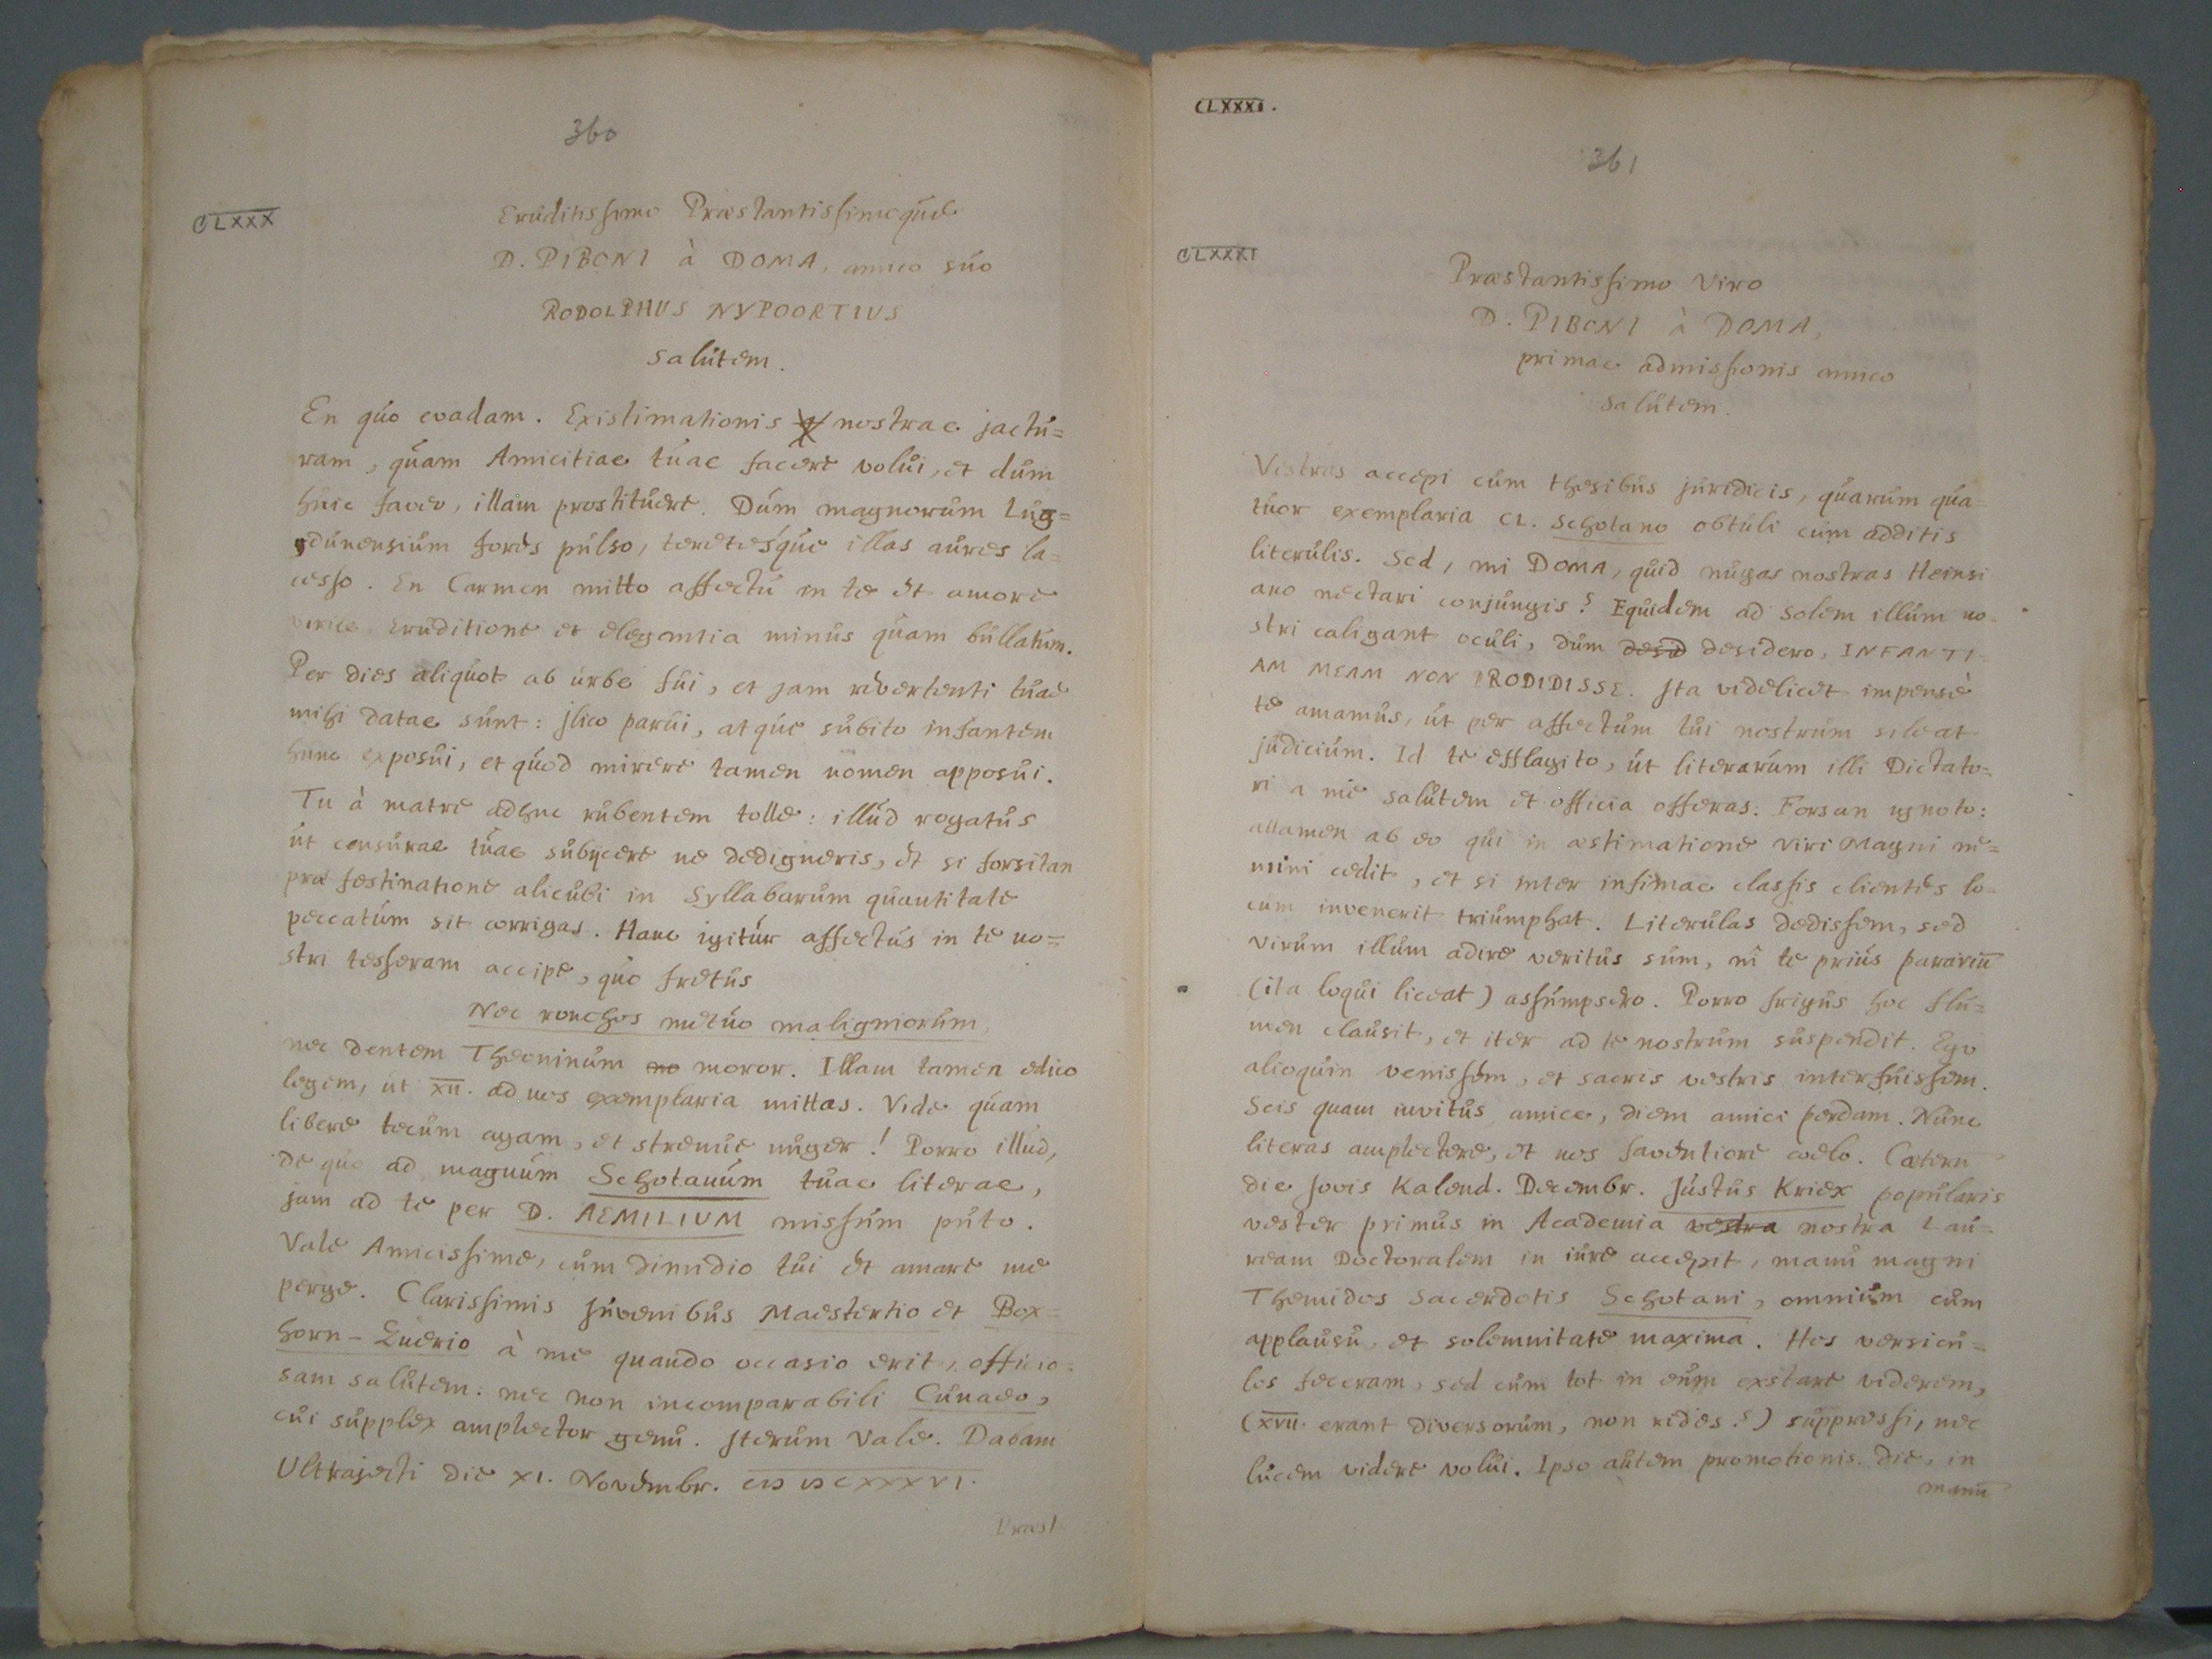 360
CLXXX
Eruditissimo Praestantissimoque
D. PIBONI à DOMA, amico suo
RODOLPHUS NYPOORTIUS
salutem.
En quo evadam. Existimationis nostrae jactu=
ram, quam Amicitiae tuae facere volui, et dum
huic faveo, illam prostituere. Dum magnorum Lug=
dunensium fores pulso, teretesque illas aures la=
cesso. En Carmen mitto affectu in te et amore
eruditione et elegantia minus quam bullatum.
Per dies aliquot ab urbe fui, et jam revertenti tuae
mihi datae sunt: jlico parui, atque subito infantem
hunc exposui, et quod mirere tamen nomen apposui.
Tu à matre adhuc rubentem tolle: illud rogatus
ut censurae tuae subijcere ne dedigneris, et si forsitan
prae festinatione alicubi in Syllabarum quantitate
peccatum sit corrigas. Hanc igitur affectus in te no=
stri tesseram accipe, quo fretus
Nec ronchos metuo maligniorum,
nec dentem Theoninum no moror. Illam tamen edico
legem, ut XII. ad nos exemplaria mittas. Vide quam
libere tecum agam, et strenue nuger! Porro illud,
de quo ad magnum Schotanum tuae literae,
jam ad te per D. AEMILIUM missum puto.
Vale Amicissime, cum dimidio tui et amare me
perge. Clarissimis Juvenibus Maestertio et Box=
horn-Zuerio à me quando occasio erit, officio=
sam salutem: nec non incomparabili Cunaeo,
cui supplex amplector genu. Iterum Vale. Dabam
Ultrajecti die XI. Novembr. CIƆ IƆ CXXXVI.
Praest
CLXXXI.
361
CLXXXI
Praestantissimo Viro
D. PIBONI à DOMA,
primae admissionis amico
salutem.
Vestras accepi cum thesibus juridicis, quarum qua=
tuor exemplaria CL. Schotano obtuli cum additis
literulis. Sed, mi DOMA, quid nugas nostras Heinsi
ano nectari conjungis? Equidem ad solem illum no=
stri caligant oculi, dum desid desidero, INFANTI=
AM MEAM NON PRODIDISSE. Ita videlicet impensè
te amamus, ut per affectum tui nostrum sileat
judicium. Id te efflagito, ut literarum illi Dictato=
ri a me salutem et officia offeras. Forsan ignoto:
attamen ab eo qui in aestimatione viri Magni ne=
mini cedit, et si inter infimae classis clientes lo=
cum invenerit triumphat. Literulas dedissem, sed
virum illum adire veritus sum, ni te prius parariū
(ita loqui liceat) assumpsero. Porro frigus hoc flu=
men clausit, et iter ad te nostrum suspendit. Ego
alioquin venissem, et sacris vestris interfuissem.
Scis quam invitus, amice, diem amici perdam. Nunc
literas amplectere, et nos faventiore coelo. Caeterū
die Jovis Kalend. Decembr. Justus Kriex popularis
vester primus in Academia vestra nostra Lau=
ream Doctoralem in iure accepit, manu magni
Themidos Sacerdotis Schotani, omnium cum
applausu, et solemnitate maxima. Hos versicu=
los feceram, sed cum tot in eum exstare viderem,
(XVII. erant diversorum, non rides?) suppressi, nec
lucem videre volui. Ipso autem promotionis die, in
manū